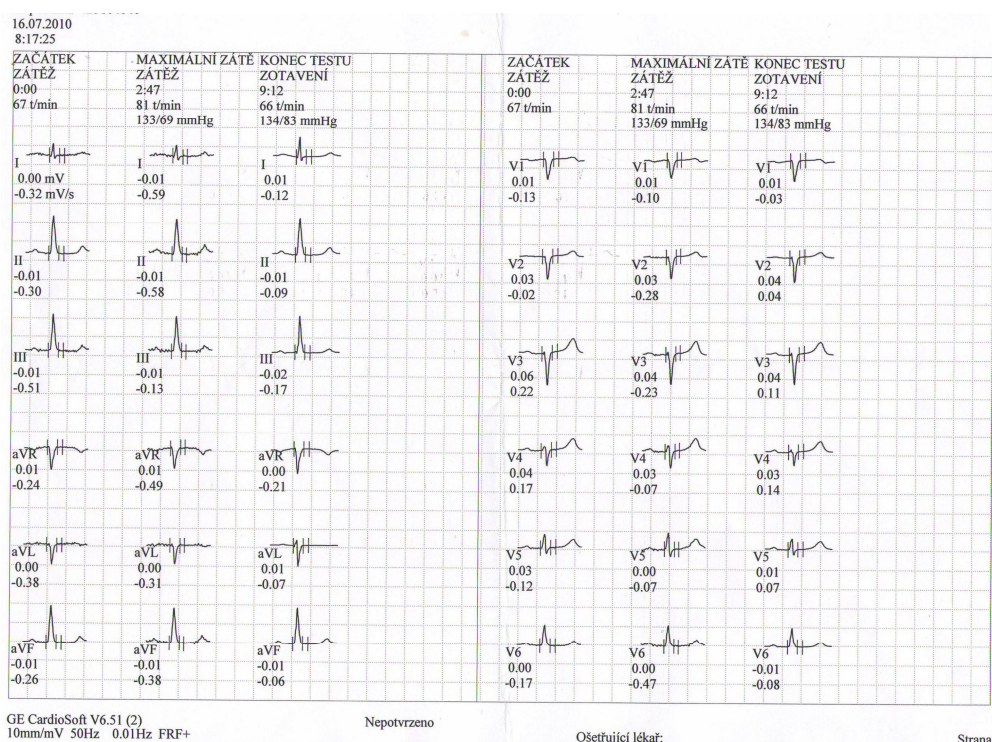 16.07.2010
8:17:25
ZAČÁTEK
ZÁTĚŽ
0:00
67 t/min
MAXIMÁLNÍ ZÁTĚ
ZÁTĚŽ
2:47
81 t/min
133/69 mmHg
KONEC TESTU
ZOTAVENÍ
9:12
66 t/min
134/83 mmHg
I
0.00 mV
-0.32 mV/s
I
-0.01
-0.59
I
0.01
-0.12
II
-0.01
-0.30
II
-0.01
-0.58
II
-0.01
-0.09
III
-0.01
-0.51
III
-0.01
-0.13
III
-0.02
-0.17
aVR
0.01
-0.24
aVR
0.01
-0.49
aVR
0.00
-0.21
aVL
0.00
-0.38
aVL
0.00
-0.31
aVL
0.01
-0.07
aVF
-0.01
-0.26
aVF
-0.01
-0.38
aVF
-0.01
-0.06
ZAČÁTEK
ZÁTĚŽ
0:00
67 t/min
MAXIMÁLNÍ ZÁTĚ
ZÁTĚŽ
2:47
81 t/min
133/69 mmHg
KONEC TESTU
ZOTAVENÍ
9:12
66 t/min
134/83 mmHg
V1
0.01
-0.13
V1
0.01
-0.10
V1
0.01
-0.03
V2
0.03
-0.02
V2
0.03
-0.28
V2
0.04
0.04
V3
0.06
0.22
V3
0.04
-0.23
V3
0.04
0.11
V4
0.04
0.17
V4
0.03
-0.07
V4
0.03
0.14
V5
0.03
-0.12
V5
0.00
-0.07
V5
0.01
0.07
V6
0.00
-0.17
V6
0.00
-0.47
V6
-0.01
-0.08
GE CardioSoft V6.51 (2)
10mm/mV 50Hz 0.01Hz FRF+
Nepotvrzeno
Ošetřující lékař:
Strana